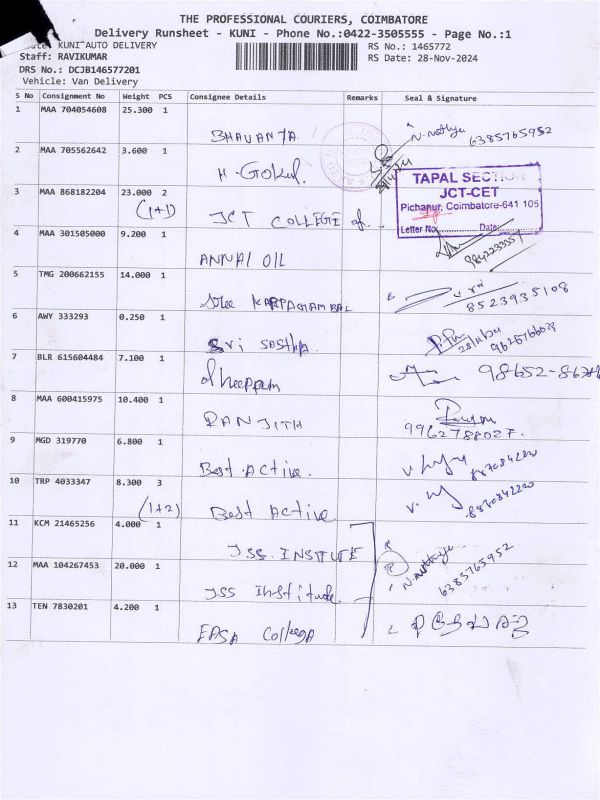 THE PROFESSIONAL COURIERS, COIMBATORE
Delivery Runsheet - KUNI - Phone No.:0422-3505555 - Page No.:1
KUNI AUTO DELIVERY
RS No.: 1465772
Staff: RAVIKUMAR
RS Date: 28-Nov-2024
DRS No.: DCJB146577201
Vehicle: Van Delivery
S No Consignment No Weight PCS Consignee Details Remarks Seal & Signature
1 MAA 704054608 25.300 1 BHAVANYA 6385765952
2 MAA 705562642 3.600 1 H. Gokul
3 MAA 868182204 23.000 2 (1+1) JCT COLLEGE of
TAPAL SECTION
JCT-CET
Pichanur, Coimbatore-641 105
Letter No. Date:
4 MAA 301505000 9.200 1 ANNAI OIL
5 TMG 200662155 14.000 1 Shree KARPAGAMBAL 8523935108
6 AWY 333293 0.250 1 Sri Sastha
7 BLR 615604484 7.100 1 dheeppam
8 MAA 600415975 10.400 1 RANJITH 9962788027.
9 MGD 319770 6.800 1 Best Active.
10 TRP 4033347 8.300 3 (1+2) Best Active
11 KCM 21465256 4.000 1 JSS. INSTITUTE
12 MAA 104267453 20.000 1 JSS Institude. 6385765952
13 TEN 7830201 4.200 1 EASA College